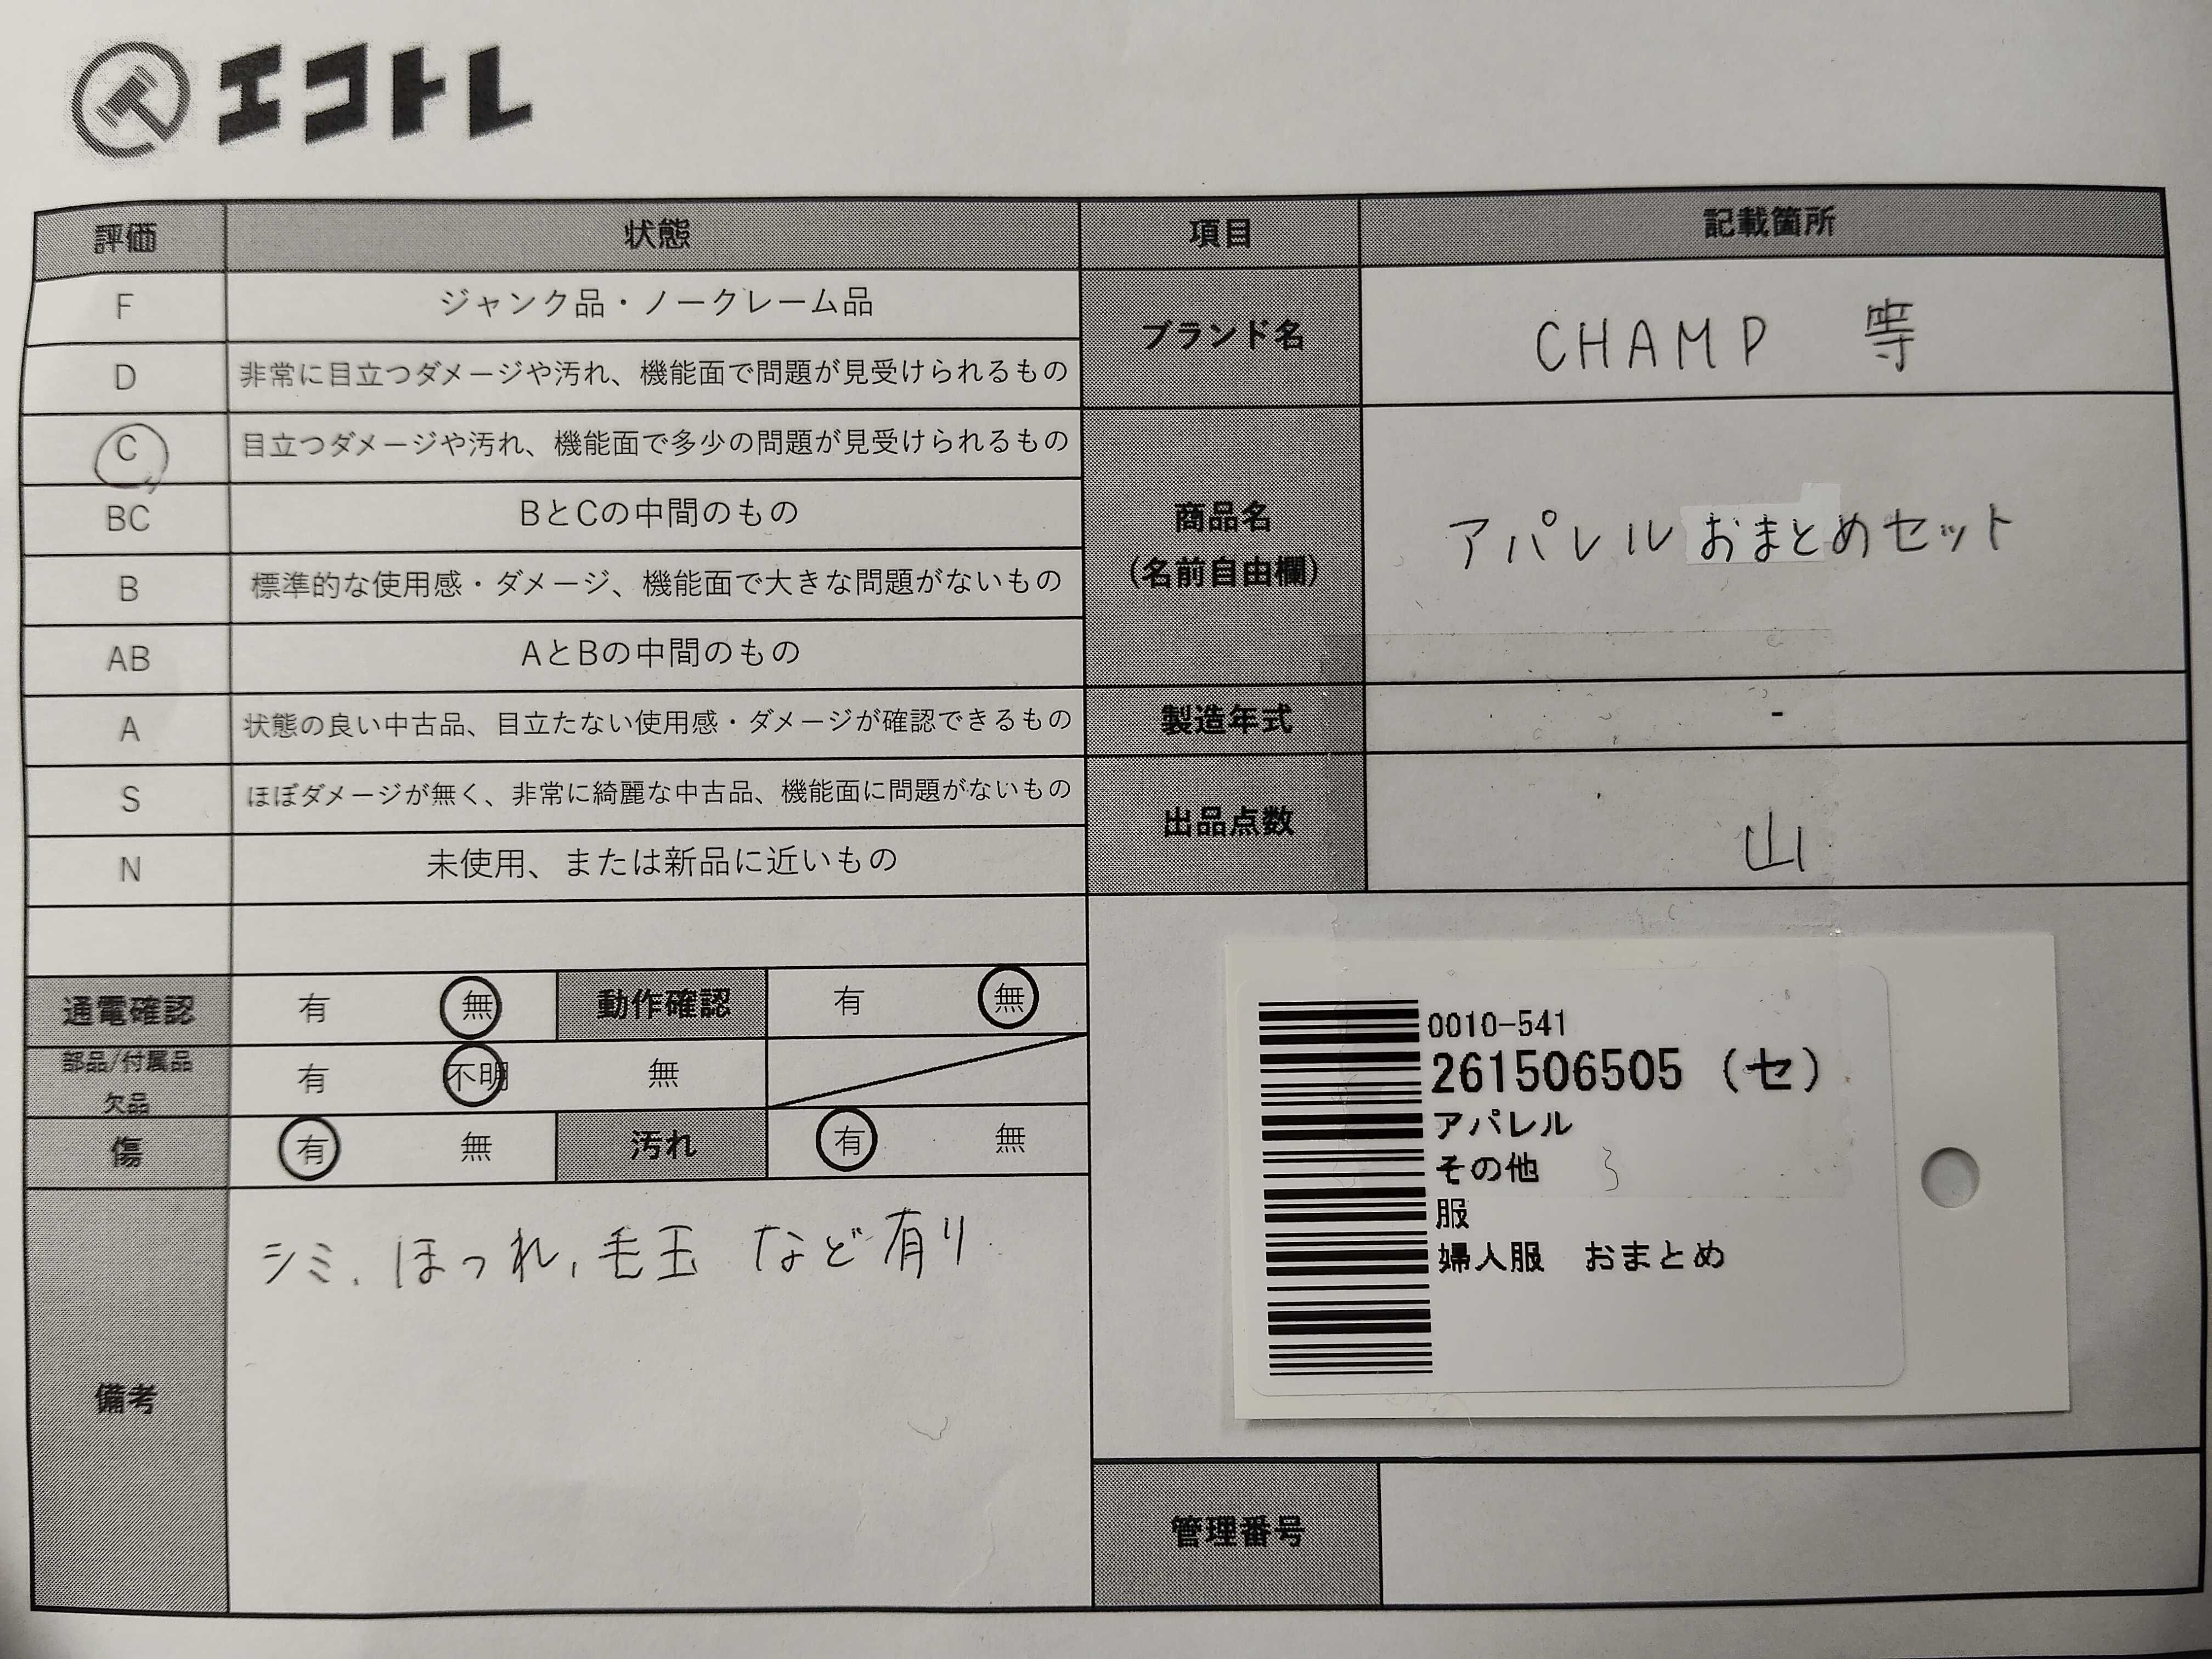 エコトレ
評価 状態 項目 記載箇所
F ジャンク品・ノークレーム品
D 非常に目立つダメージや汚れ、機能面で問題が見受けられるもの
C 目立つダメージや汚れ、機能面で多少の問題が見受けられるもの
BC BとCの中間のもの
B 標準的な使用感・ダメージ、機能面で大きな問題がないもの
AB AとBの中間のもの
A 状態の良い中古品、目立たない使用感・ダメージが確認できるもの
S ほぼダメージが無く、非常に綺麗な中古品、機能面に問題がないもの
N 未使用、または新品に近いもの
ブランド名 CHAMP 等
商品名
(名前自由欄)
アパレルおまとめセット
製造年式 -
出品点数 山
通電確認 有 無 動作確認 有 無
部品/付属品
欠品
有 不明 無
傷 有 無 汚れ 有 無
備考
シミ、ほつれ、毛玉 など有り
0010-541
261506505 (セ)
アパレル
その他
服
婦人服 おまとめ
管理番号